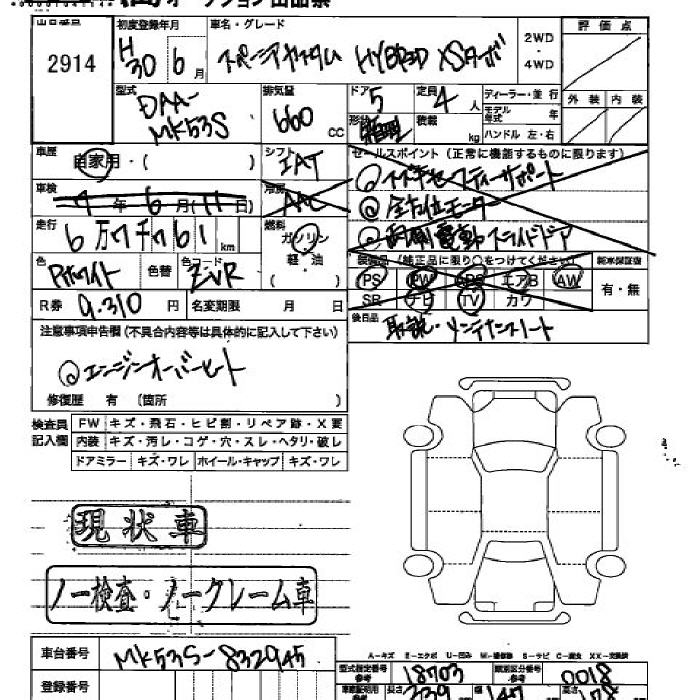 オークション出品票
出品番号 2914
初度登録年月 H30 6月
車名・グレード スペーシアカスタム HYBRID XSターボ
2WD ・ 4WD
評価点
外装 内装
型式 DAA-MK53S
排気量 660 CC
ドア 5
定員 4人
形状 箱型
積載 kg
ディーラー・並行
モデル年式 年
ハンドル 左・右
車歴 自家用・( )
シフト IAT
セールスポイント(正常に機能するものに限ります)
車検 7年6月(11日)
冷房 AAC
◎スズキセーフティーサポート
◎全方位モニター
◎両側電動スライドドア
走行 6万7千761 km
燃料 ガソリン 軽・油
色 Pホワイト
色替
色コード ZVR
装備品(純正品に限り○をつけてください)
PS PW ABS エアB AW
SR ナビ TV カワ
新車保証書 有・無
R券 9.310円
名変期限 月 日
後日品 取説・メンテナンスノート
注意事項申告欄(不具合内容等は具体的に記入して下さい)
◎エンジンオーバーヒート
修復歴 有 (箇所 )
検査員記入欄
FW キズ・飛石・ヒビ割・リペア跡・X要
内装 キズ・汚レ・コゲ・穴・スレ・ヘタリ・破レ
ドアミラー キズ・ワレ ホイール・キャップ キズ・ワレ
現状車
ノー検査・ノークレーム車
A-キズ E-エクボ U-凹み W-補修跡 S-サビ C-腐食 XX-交換済
車台番号 MK53S-832945
型式指定番号参考 18703
類別区分番号参考 0018
登録番号
車検証明用参考 長さ 339 幅 147 高さ 178